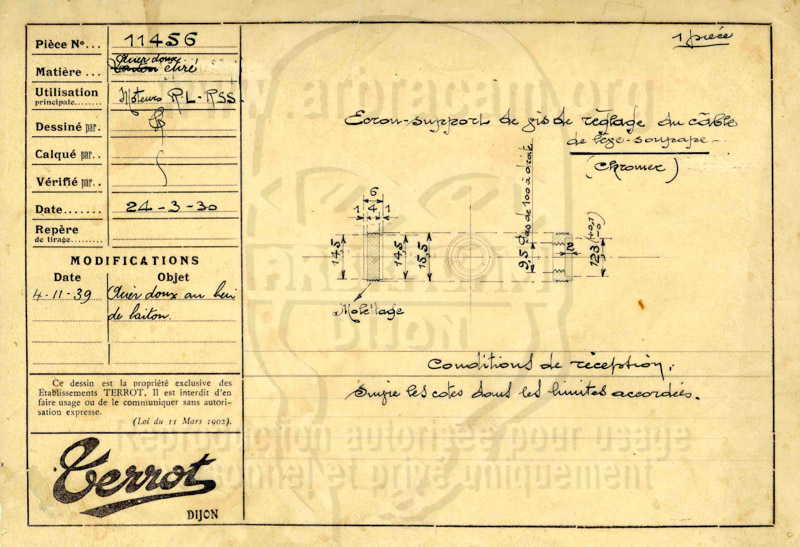 Pièce Nº... 11456
Matière... Acier doux
laiton étiré
Utilisation
principale........ Moteurs RL-RSS.
Dessiné par.
Calqué par..
Vérifié par..
Date....... 24-3-30
Repère
de tirage.........
MODIFICATIONS
Date Objet
4-11-39 Acier doux au lieu
de laiton.
Ce dessin est la propriété exclusive des
Etablissements TERROT. Il est interdit d'en
faire usage ou de le communiquer sans autori-
sation expresse.
(Loi du 11 Mars 1902).
Terrot
DIJON
1 pièce
Ecrou-support de vis de réglage du câble
de lève-soupape
(chromer)
6
1 4 1
14,5
14,5
15,5
9,5 pas de 100 à droite
2
12,3 (+0,1 -0)
Moletage
Conditions de réception.
Suivre les cotes dans les limites accordées.
www.arbracam.org
DIJON
Reproduction autorisée pour usage
personnel et privé uniquement